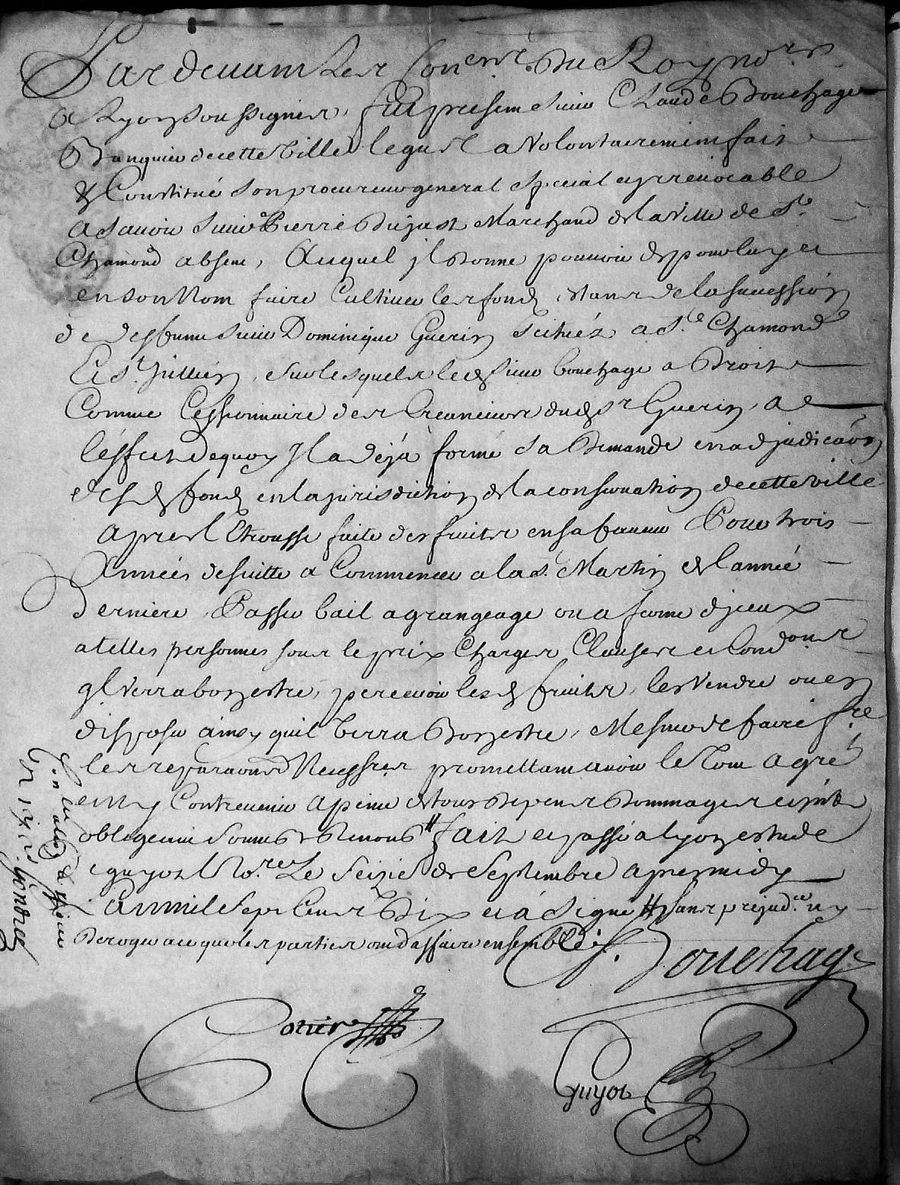 Pardevant les Con.ers du Roy no.res
a Lyon soussignes, fut present sieur Claude Bouchage
Banquier de cette ville lequel a volontairement fait
& Constitué son procureur general special et irrevocable
a savoir sieur Pierre Dujast Marchand de la ville de St
Chamond absent, Auquel il donne pouvoir de pour luy et
en son Nom faire Cultiver les fonds estans de la succession
de deffunt sieur Dominique Guerin scituéz a St Chamond
Et St Jullien, sur lesquels led sieur bouchage a Droit
Comme Cessionnaire des Creanciers dud sr Guerin, a
l'effect dequoy Il a déja formé sa Demande en adjudicaon
desd fonds en la jurisdiction de la conservation de cette ville
apres l'Etrousse faite des fruits en sa faveur Pour trois
Années desuitte a Commencer a la St Martin de l'année
derniere, Passer bail a grangeage ou a ferme d'iceux
a telles personnes sous le prix Charges Clauses et Condons
ql verra bon estre, percevoir lesd fruits, les vendre ou en
disposer ainsy quil verra bon estre, Mesme de faire fre
les reparaons Necessres promettant avoir le tout agreé
et ny Contrevenir a peine de tous depens dommages et int
obligeant soumet & Renonc # fait et passé a Lyon estude
guyot l'un no.res Le Seizie de Septembre apres midy
Mil Sept Cents Dix et a Signé # sans prejudce ny
Deroger a ce que les parties ont d'affaire ensemble
Bouchage
Cotier
Guyot
Con.lle a Lyon